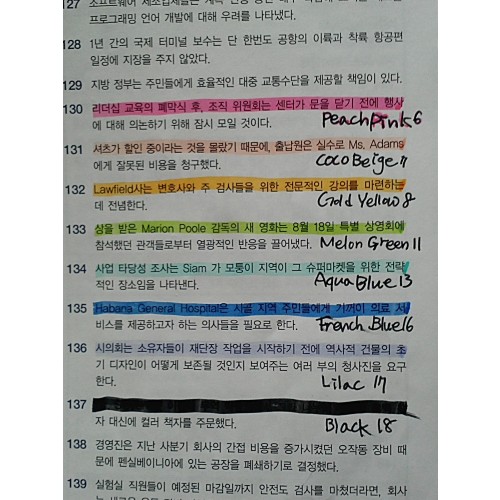 127 소프트웨어
프로그래밍 언어 개발에 대해 우려를 나타냈다.
128 1년 간의 국제 터미널 보수는 단 한번도 공항의 이륙과 착륙 항공편
일정에 지장을 주지 않았다.
129 지방 정부는 주민들에게 효율적인 대중 교통수단을 제공할 책임이 있다.
130 리더십 교육의 폐막식 후, 조직 위원회는 센터가 문을 닫기 전에 행사
에 대해 의논하기 위해 잠시 모일 것이다. Peach Pink 6
131 셔츠가 할인 중이라는 것을 몰랐기 때문에, 출납원은 실수로 Ms. Adams
에게 잘못된 비용을 청구했다. Coco Beige 7
132 Lawfield사는 변호사와 주 검사들을 위한 전문적인 강의를 마련하는
데 전념한다. Gold Yellow 8
133 상을 받은 Marion Poole 감독의 새 영화는 8월 18일 특별 상영회에
참석했던 관객들로부터 열광적인 반응을 끌어냈다. Melon Green 11
134 사업 타당성 조사는 Siam 가 모퉁이 지역이 그 슈퍼마켓을 위한 전략
적인 장소임을 나타낸다. Aqua Blue 13
135 Habana General Hospital은 시골 지역 주민들에게 기꺼이 의료 서
비스를 제공하고자 하는 의사들을 필요로 한다. French Blue 16
136 시의회는 소유자들이 재단장 작업을 시작하기 전에 역사적 건물의 초
기 디자인이 어떻게 보존될 것인지 보여주는 여러 부의 청사진을 요구
한다. Lilac 17
137
자 대신에 컬러 책자를 주문했다. Black 18
138 경영진은 지난 사분기 회사의 간접 비용을 증가시켰던 오작동 장비 때
문에 펜실베이니아에 있는 공장을 폐쇄하기로 결정했다.
139 실험실 직원들이 예정된 마감일까지 안전도 검사를 마쳤더라면, 회사